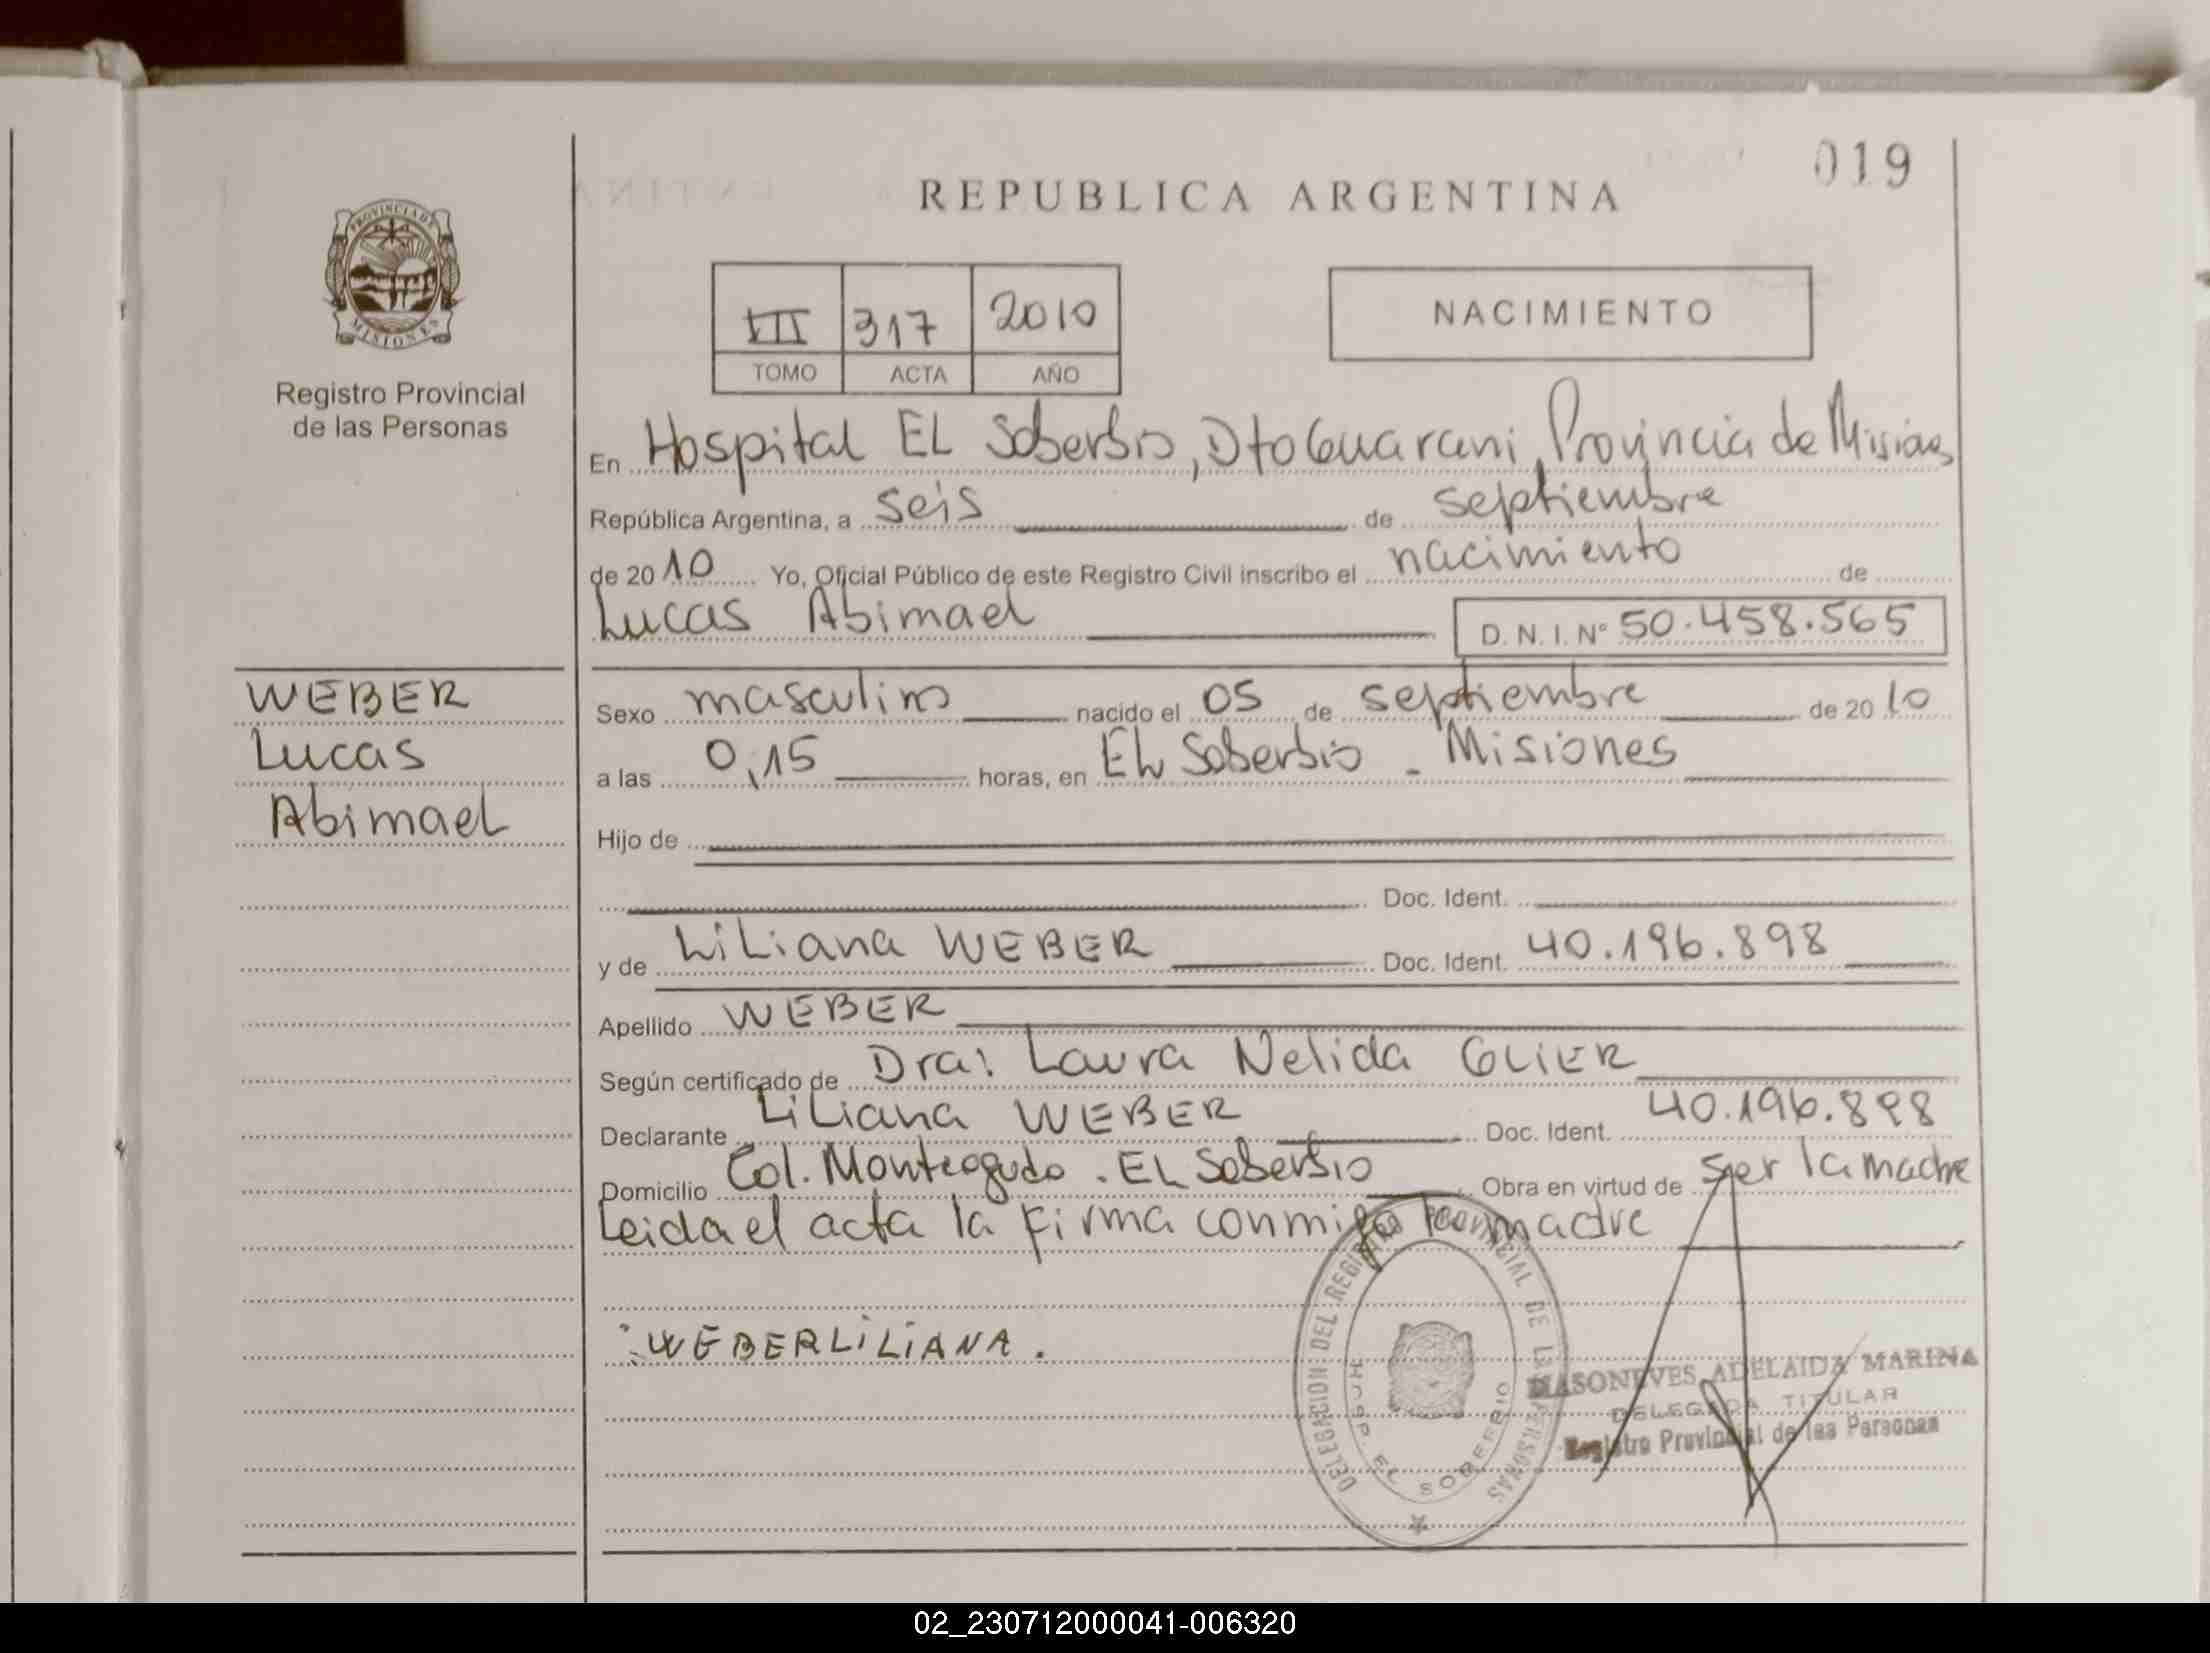 019
REPUBLICA ARGENTINA
PROVINCIA DE
MISIONES
Registro Provincial
de las Personas
III 317 2010
TOMO ACTA AÑO
NACIMIENTO
En Hospital EL Soberbio, Dto Guarani, Provincia de Misiones
República Argentina, a seis de septiembre
de 2010 Yo, Oficial Público de este Registro Civil inscribo el nacimiento de
Lucas Abimael D. N. I. Nº 50.458.565
WEBER
Lucas
Abimael
Sexo masculino nacido el 05 de septiembre de 2010
a las 0,15 horas, en EL Soberbio - Misiones
Hijo de
Doc. Ident.
y de Liliana WEBER Doc. Ident. 40.196.898
Apellido WEBER
Según certificado de Dra: Laura Nelida GLIER
Declarante Liliana WEBER Doc. Ident. 40.196.898
Domicilio Col. Monteagudo. EL Soberbio Obra en virtud de ser la madre
Leida el acta la firma conmigo la madre
WEBER LILIANA.
DELEGACION DEL REGISTRO PROVINCIAL DE LAS PERSONAS
HOSP. EL SOBERBIO
MASONEVES ADELAIDA MARINA
DELEGADA TITULAR
Registro Provincial de las Personas
02_230712000041-006320